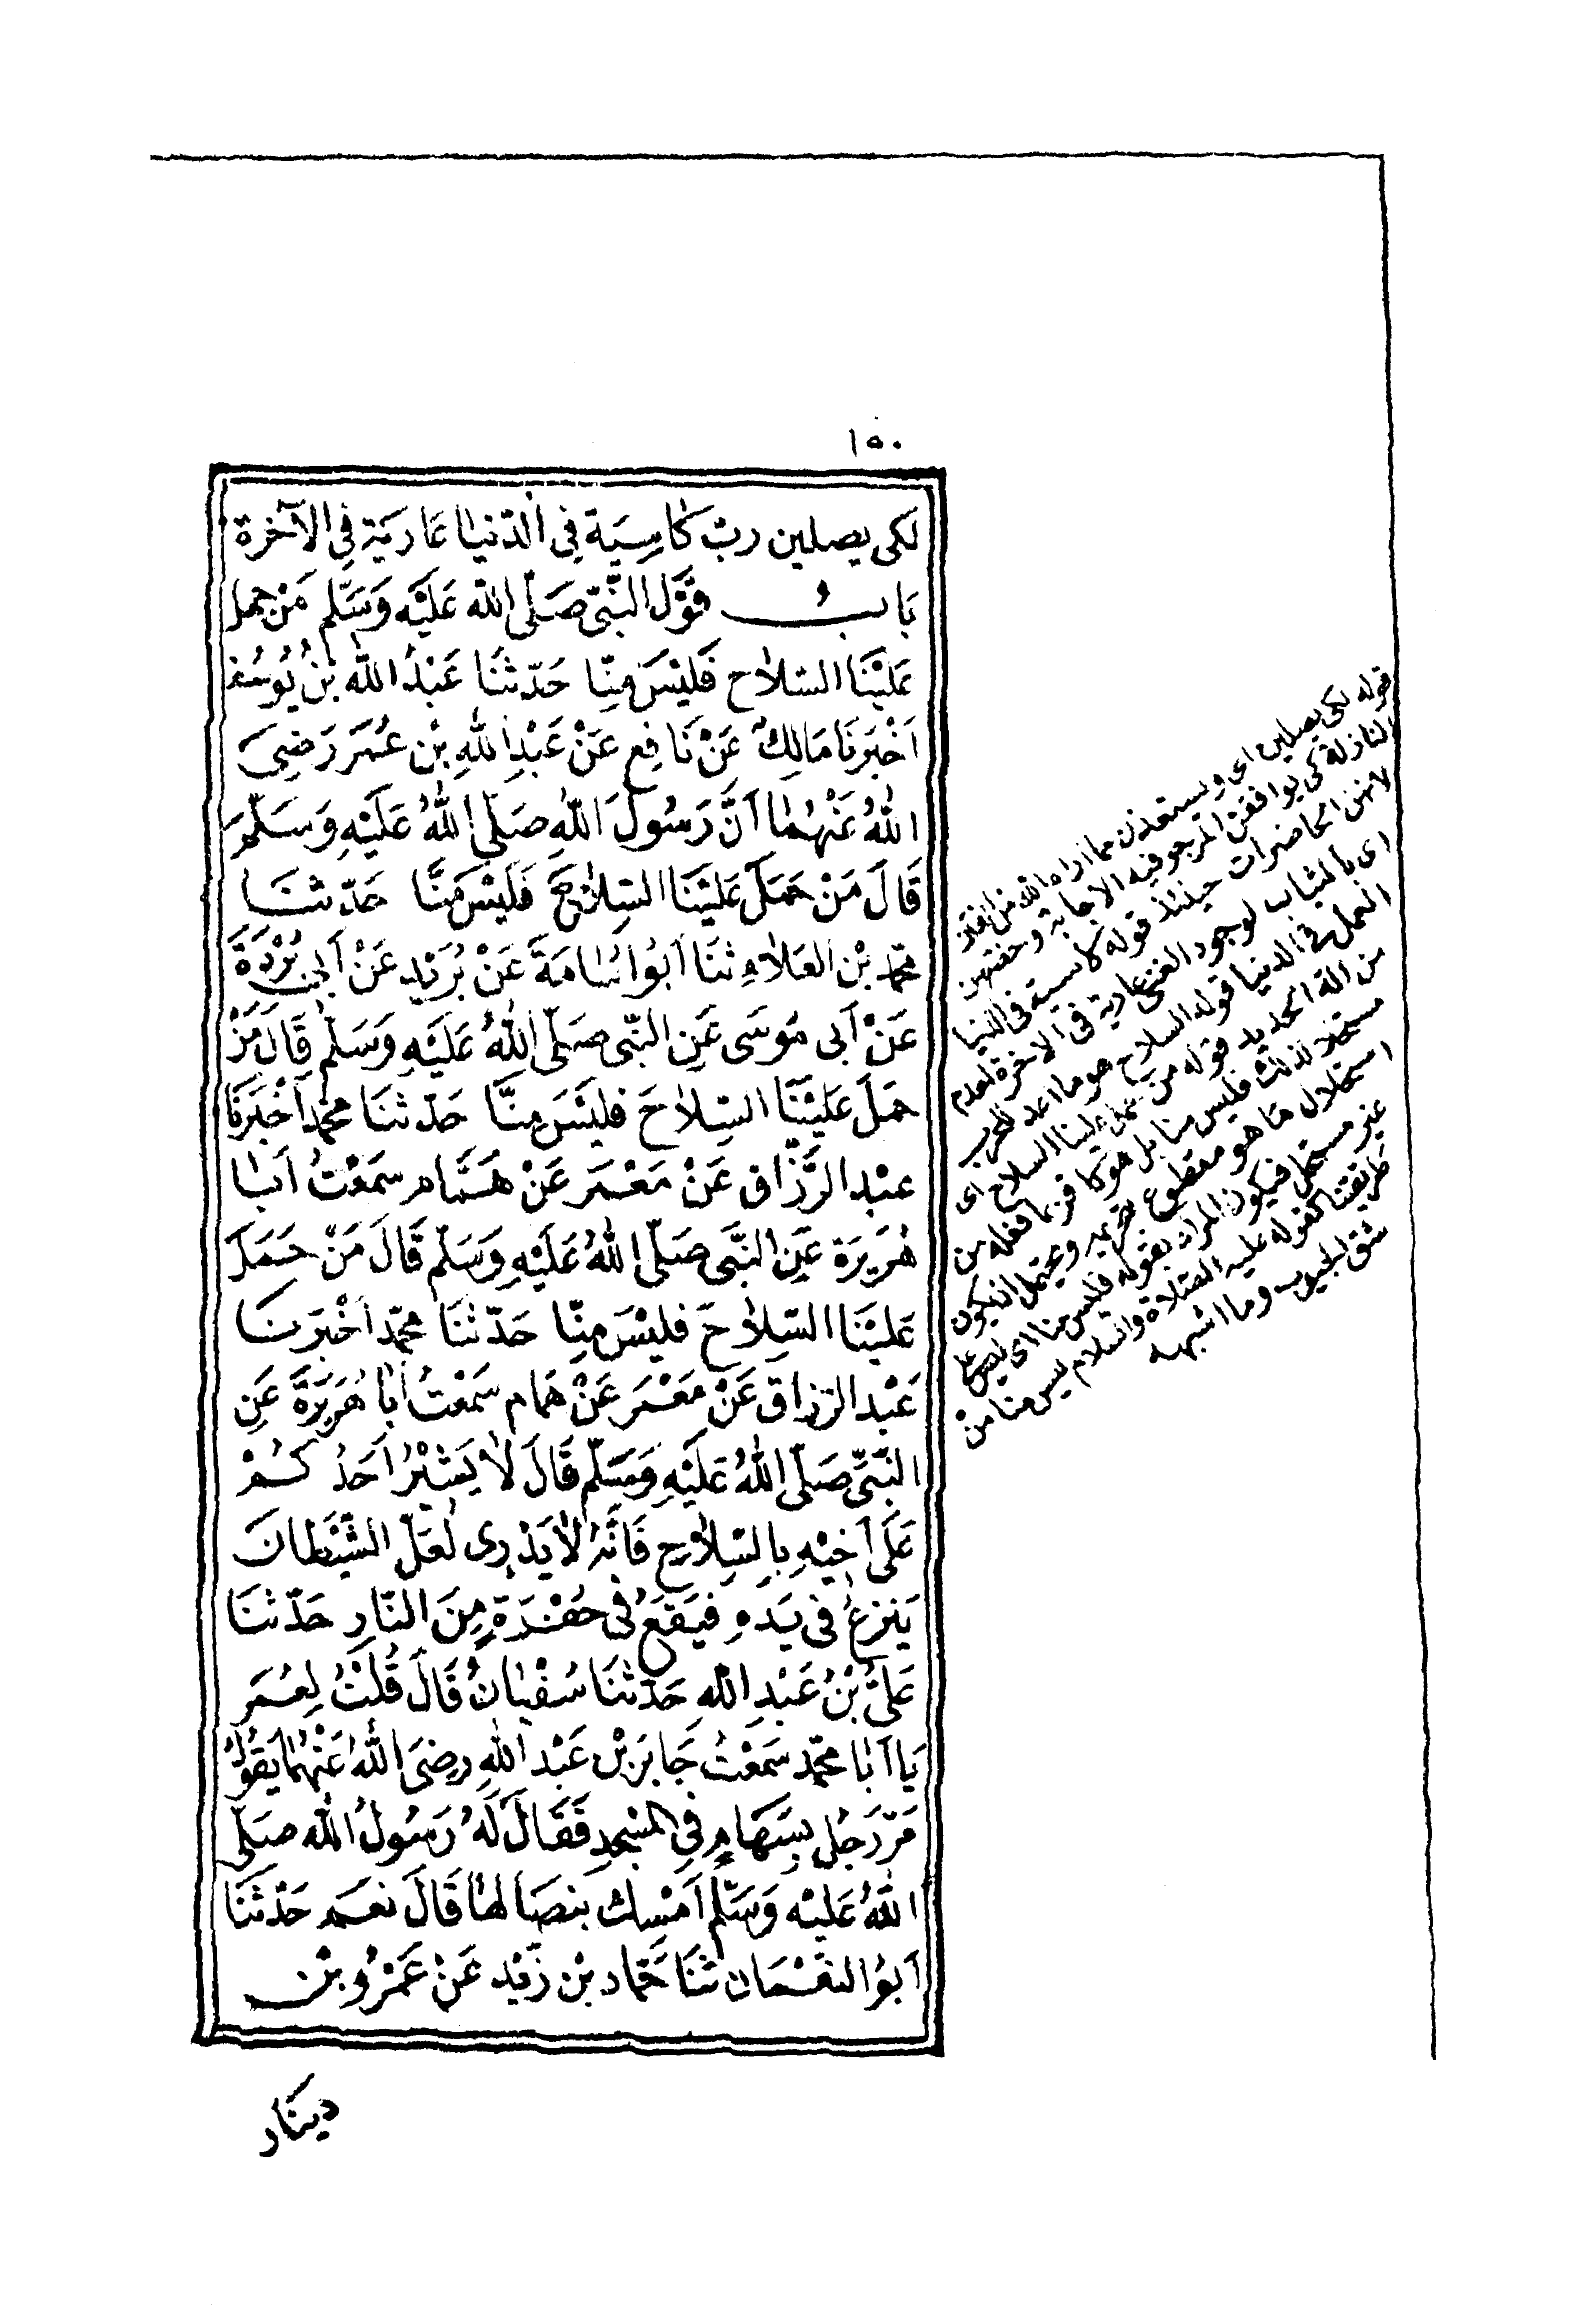 ١٥٠
لكى يصلين ربّ كَاسِيَة فِى الدّنيَا عَارِيَة فِى الآخرة
بَابُ قَوْل النَّبىّ صَلّى الله عَلَيْه وَسَلّم مَنْ حمل
عَلَيْنَا السّلاح فَلَيْسَ مِنّا حَدّثنَا عَبْدُ الله بْنُ يُوسُف
اَخْبَرَنَا مَالِكٌ عَنْ نَافِع عَنْ عَبْدِ اللهِ بْن عُمَر رَضِىَ
اللهُ عَنْهُمَا اَنَّ رَسُولَ اللهِ صَلّى اللهُ عَلَيْهِ وَسَلّمَ
قَالَ مَنْ حَمَلَ عَلَيْنَا السِّلاحَ فَلَيْسَ مِنَّا حَدّثنَا
محمّد بْن العَلاءِ ثنَا اَبُو اُسَامَةَ عَنْ بُرَيْد عَنْ اَبى بُرْدَةَ
عَنْ اَبى مُوسَى عَنِ النّبّى صَلّى اللهُ عَلَيْهِ وَسَلّم قَالَ مَنْ
حَمَلَ عَلَيْنَا السِّلاحَ فَليْسَ مِنَّا حَدّثنَا محمّد اَخْبَرَنَا
عبْد الرَّزّاق عَنْ مَعْمَر عَنْ هَمَّام سَمَعْتُ اَبَا
هُرَيرَة عَنِ النَّبّى صَلّى اللهُ عَلَيْهِ وَسَلّم قَالَ مَنْ حَمَلَ
عَليْنَا السِّلاحَ فليْسَ مِنّا حَدّثنَا محمّد اَخْبَرنَا
عَبْد الرّزاق عَنْ مَعْمَر عَنْ هَمام سَمَعْتُ اَبَا هُرَيرَةَ عَنِ
النَّبىِّ صَلّى اللهُ عَلَيْهِ وَسَلّم قَالَ لَا يَشيْرُ اَحَدُ كُمْ
عَلَى اَخِيْهِ بِالسِّلَاحِ فَانَّهُ لَا يَدْرِى لَعَلّ الشّيْطَانَ
يَنزعُ فى يَدهِ فيَقَعُ فى حُفْرَةٍ مِنَ النّارِ حَدّثنَا
عَلىُّ بْنُ عَبْدِ اللهِ حَدّثنَا سُفْيَانُ قَالَ قُلْتُ لِعُمَر
يَا اَبَا محمّد سَمَعْتُ جَابرَ بْن عَبْد اللهِ رضِىَ اللهُ عَنْهُمَا يَقُولُ
مَرّ رَجُل بسِهَامٍ فِى المسْجِدِ فَقَالَ لَهُ رَسُولُ الله صَلّى
اللهُ عَليْه وَسَلّم اَمْسِك بنصَالهَا قَالَ نعَم حَدّثنَا
اَبُو النعْمَان ثنَا حَمّاد بْن زَيْد عَنْ عَمْرُو بْن
دينَار
قوله لكى يصلين اى ويستعذن مما اراه الله من الفتن
النازلة كى يوافقن المرجو فيه الاجابة وخصهن
لانهن الحاضرات حينئذ قوله كاسية فى الدنيا
اى بالثياب لوجود الغنى عارية فى الاخرة لعدم
العمل فى الدنيا قوله السلاح هو ما اعد للحرب
من الة الحديد قوله من حمل علينا السلاح اى
مستحلا لذلك فليس منا بل هو كافر بما فعله من
استحلال ما هو مقطوع بتحريمه ويحتمل ان يكون
غير مستحل فيكون المراد بقوله فليس منا اى ليس على
طريقتنا كقوله عليه الصلاة والسلام ليس منا من
شق الجيوب وما اشبهه